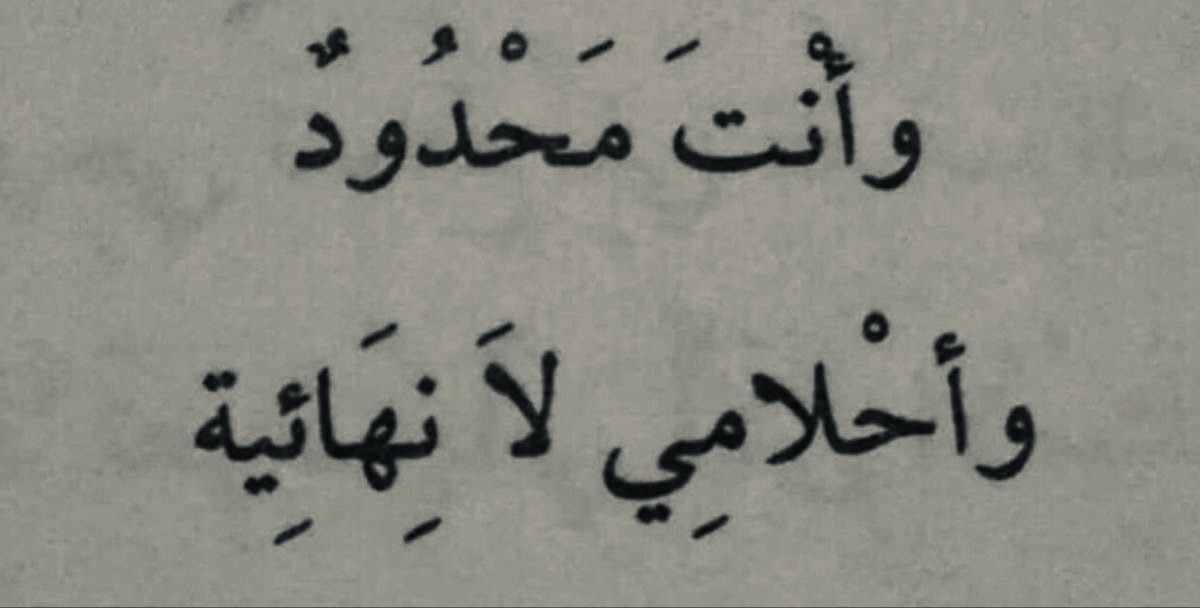 وأنْتَ مَحْدُودٌ
وأحْلامِي لاَ نِهَائِية